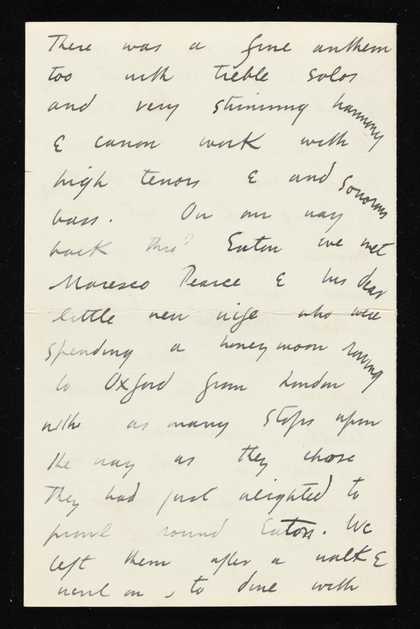 There was a fine anthem
too with treble solos
and very stunning harmony
& canon work with
high tenors & and sonorous
bass. On our way
back thro' Eaton we met
Maresco Pearce & his dear
little new wife who were
spending a honeymoon rowing
to Oxford from London
with as many stops upon
the way as they chose
They had just alighted to
prowl round Eaton. We
left them after a walk &
went on, to dine with